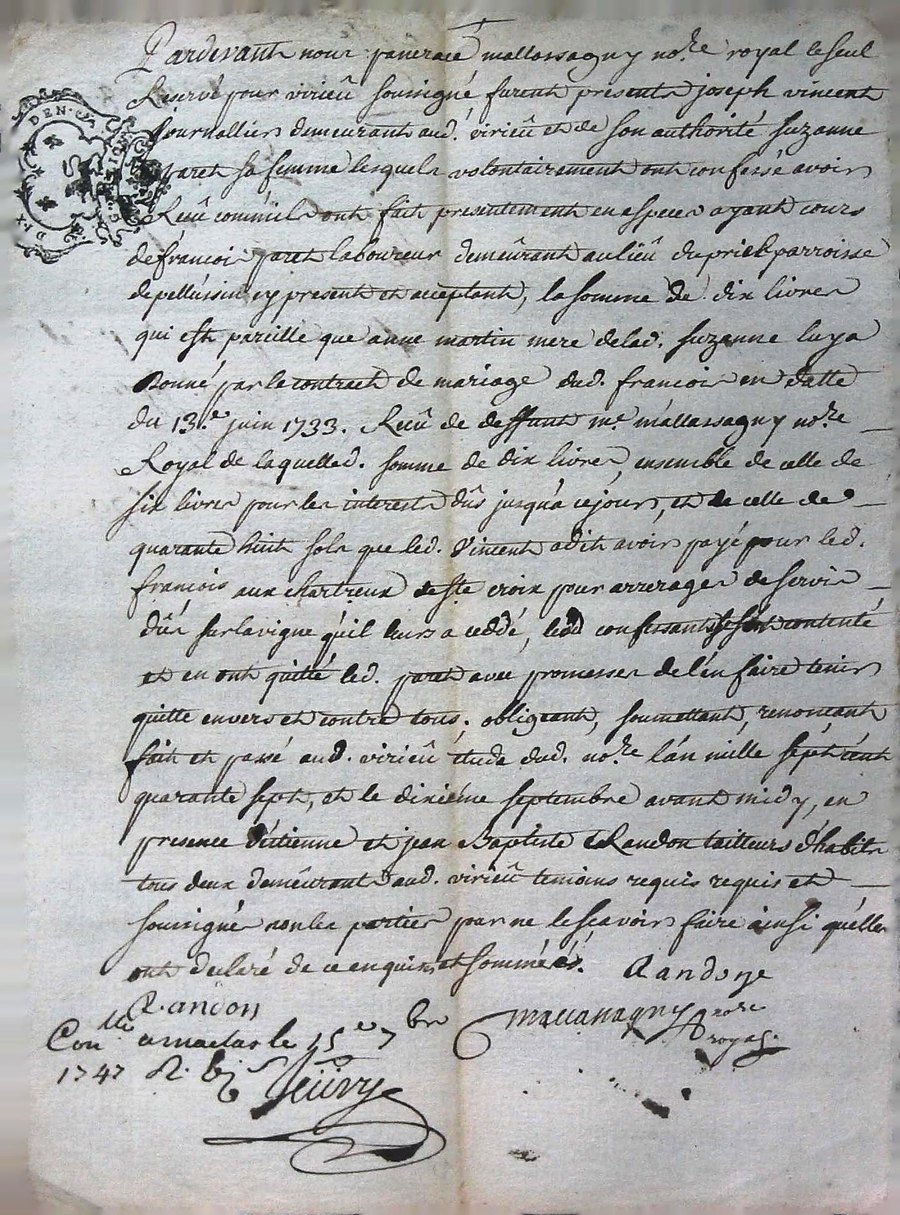 Pardevant nous pancrace mallassagny no.re royal le seul
Reservé pour virieû soussigné furent presents joseph vincent
journallier demeurant aud. virieû et de son authorité suzanne
paret sa femme lesquels volontairement ont confessé avoir
Reçû comm'ils ont fait presentement en especes ayant cours
de francois paret laboureur demeûrant au lieû du priel parroisse
de pellussin cy present et acceptant, la somme de dix livres
qui est pareille que anne martin mere de lad. suzanne luy a
Donné par le contract de mariage dud. francois en datte
du 13.e juin 1733. Reçû de deffunt m.e mallassagny no.re
Royal de laquelled. somme de dix livres, ensemble de celle de
six livres pour les interests dûs jusqu'a ce jour, et de celle de
quarante huit sols que led. vincent a dit avoir payé pour led.
francois aux chartreux de ste croix pour arrerages de servis
dûs sur la vigne qu'il leurs a ceddé, lesd confessants se sont contenté
et en ont quitté led. paret avec promesses de l'en faire tenir
quitte envers et contre tous. obligeant, soumettant, renonçant
fait et passé aud. virieû étude dud. no.re l'an mille sépt cent
quarante sept, et le dixiéme septembre avant midy, en
presence d'étienne et jean Baptiste Randon tailleurs d'habits
tous deux demeûrant aud. virieû temoins requis requis et
soussignés non les parties par ne le sçavoir faire ainsi qu'elles
ont declaré de ce enquis et sommées. Randon
Randon
mallassagny no.re
royal
Con.lle a maclas le 15e 7bre
1747 R.